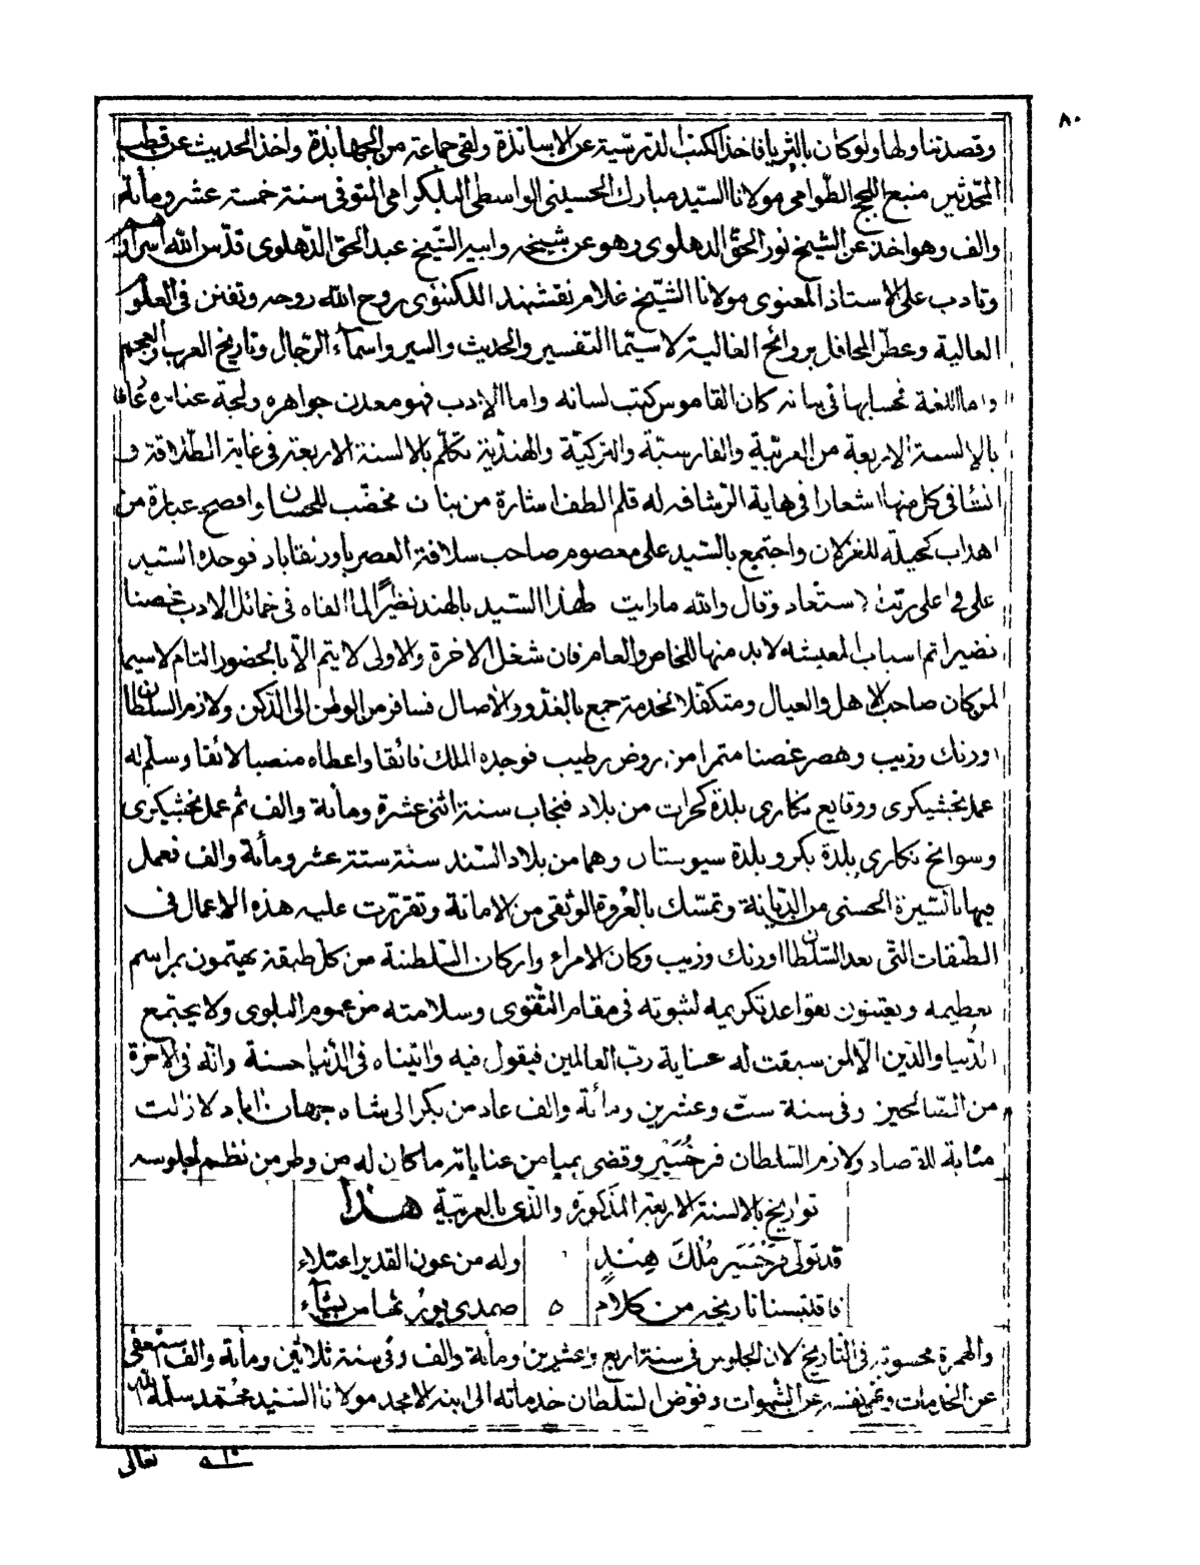 ٨٠
وقصد تناولها ولو كان بالثريا فاخذ الكتب الدرسية عن الاساتذة ولقى جماعة من الجهابذة واخذ الحديث عن قطب
المحدثين منبع اللجج الطوامى مولانا السيد مبارك الحسينى الواسطى البلكرامى المتوفى سنة خمسة عشر ومأئة
والف وهو اخذ عن الشيخ نور الحق الدهلوى وهو عن شيخه وابيه الشيخ عبد الحق الدهلوى قدس الله اسرارهم
وتادب على الاستاذ المعنوى مولانا الشيخ غلام نقشبند اللكنوى روح الله روحه وتفنن فى العلوم
العالية وعطر المحافل بروائح الغالية لا سيما التفسير والحديث والسير واسماء الرجال وتاريخ العرب والعجم
واما اللغة فحسابها فى بنانه كان القاموس كتب لسانه واما الادب فهو معدن جواهره ولجة عنابره عارفا
بالالسنة الاربعة من العربية والفارسية والتركية والهندية تكلم بالالسنة الاربعة فى غاية الطلاقة و
انشا فى كل منها اشعارا فى نهاية الرشاقة له قلم الطف اشارة من بنان مخضب للحسان وافصح عبارة من
اهداب كحيلة للغزلان واجتمع بالسيد على معصوم صاحب سلافة العصر باورنقاباد فوجده السيد
على فى اعلى رتبة الاستعداد وقال والله ما رايت لهذا السيد بالهند نظيرا لما الفاه فى خمائل الادب غصنا
نضيرا ثم اسباب المعيشه لا بد منها للخاص والعام فان شغل الاخرة والاولى لا يتم الا بالحضور التام لا سيما
لمن كان صاحب الاهل والعيال ومتكفلا لخدمة جمع بالغدو والاصال فسافر من الوطن الى الدكن ولازم السلطان
اورنك وزيب وهصر غصنا مثمرا من روض رطيب فوجده الملك فائقا واعطاه منصبا لائقا وسلم له
عمل بخشيكرى ووقايع نكارى بلدة كجرات من بلاد فنجاب سنة اثنى عشرة ومأئة والف ثم عمل بخشيكرى
وسوانح نكارى بلدة بكر وبلدة سيوستان وهما من بلاد السند سنة ستة عشر ومأئة والف فعمل
فيها بالسيرة الحسنى من الديانة وتمسك بالعروة الوثقى من الامانة وتقررت عليه هذه الاعمال فى
الطبقات التى بعد السلطان اورنك وزيب وكان الامراء واركان السلطنة من كل طبقة يهتمون بمراسم
تعظيمه ويعتنون بقواعد تكريمه لثبوته فى مقام التقوى وسلامته من عموم البلوى ولا يجتمع
الدنيا والدين الا لمن سبقت له عناية رب العالمين فيقول فيه واتيناه فى الدنيا حسنة وانه فى الاخرة
من الصالحين وفى سنة ست وعشرين ومأئة والف عاد من بكر الى شاه جهان اباد لا زالت
مثابة للقصاد ولازم السلطان فرخسير وقضى بميامن عناياته ما كان له من وطر من نظم لجلوسه
تواريخ بالالسنة الاربعة المذكورة والذى بالعربية هذا
قد تولى فرخسير ملك هند ٠ وله من عون القدير اعتلاء
فاقتبسنا تاريخه من كلام ٥ صمدى يورثها من يشاء
والهمزة محسوبة فى التاريخ لان الجلوس فى سنة اربع وعشرين ومأئة والف وفى سنة ثلاثين ومأئة والف استعفى
عن الخدمات ونفسه عن الشهوات وفوض السلطان خدماته الى ابنه الامجد مولانا السيد محمد سلمه الله
تعالى